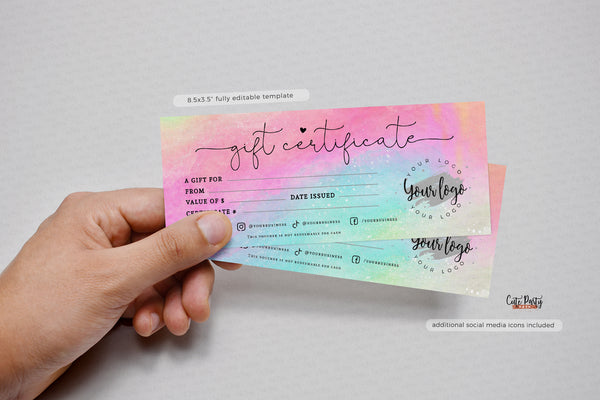 8.5x3.5" fully editable template
gift certificate
A GIFT FOR
FROM
VALUE OF $ DATE ISSUED
CERTIFICATE #
@YOURBUSINESS @YOURBUSINESS /YOURBUSINESS
THIS VOUCHER IS NOT REDEEMABLE FOR CASH
YOUR LOGO
Your logo
YOUR LOGO
@YOURBUSINESS /YOURBUSINESS
THIS VOUCHER IS NOT REDEEMABLE FOR CASH
Your logo
YOUR LOGO
Cute Party
additional social media icons included